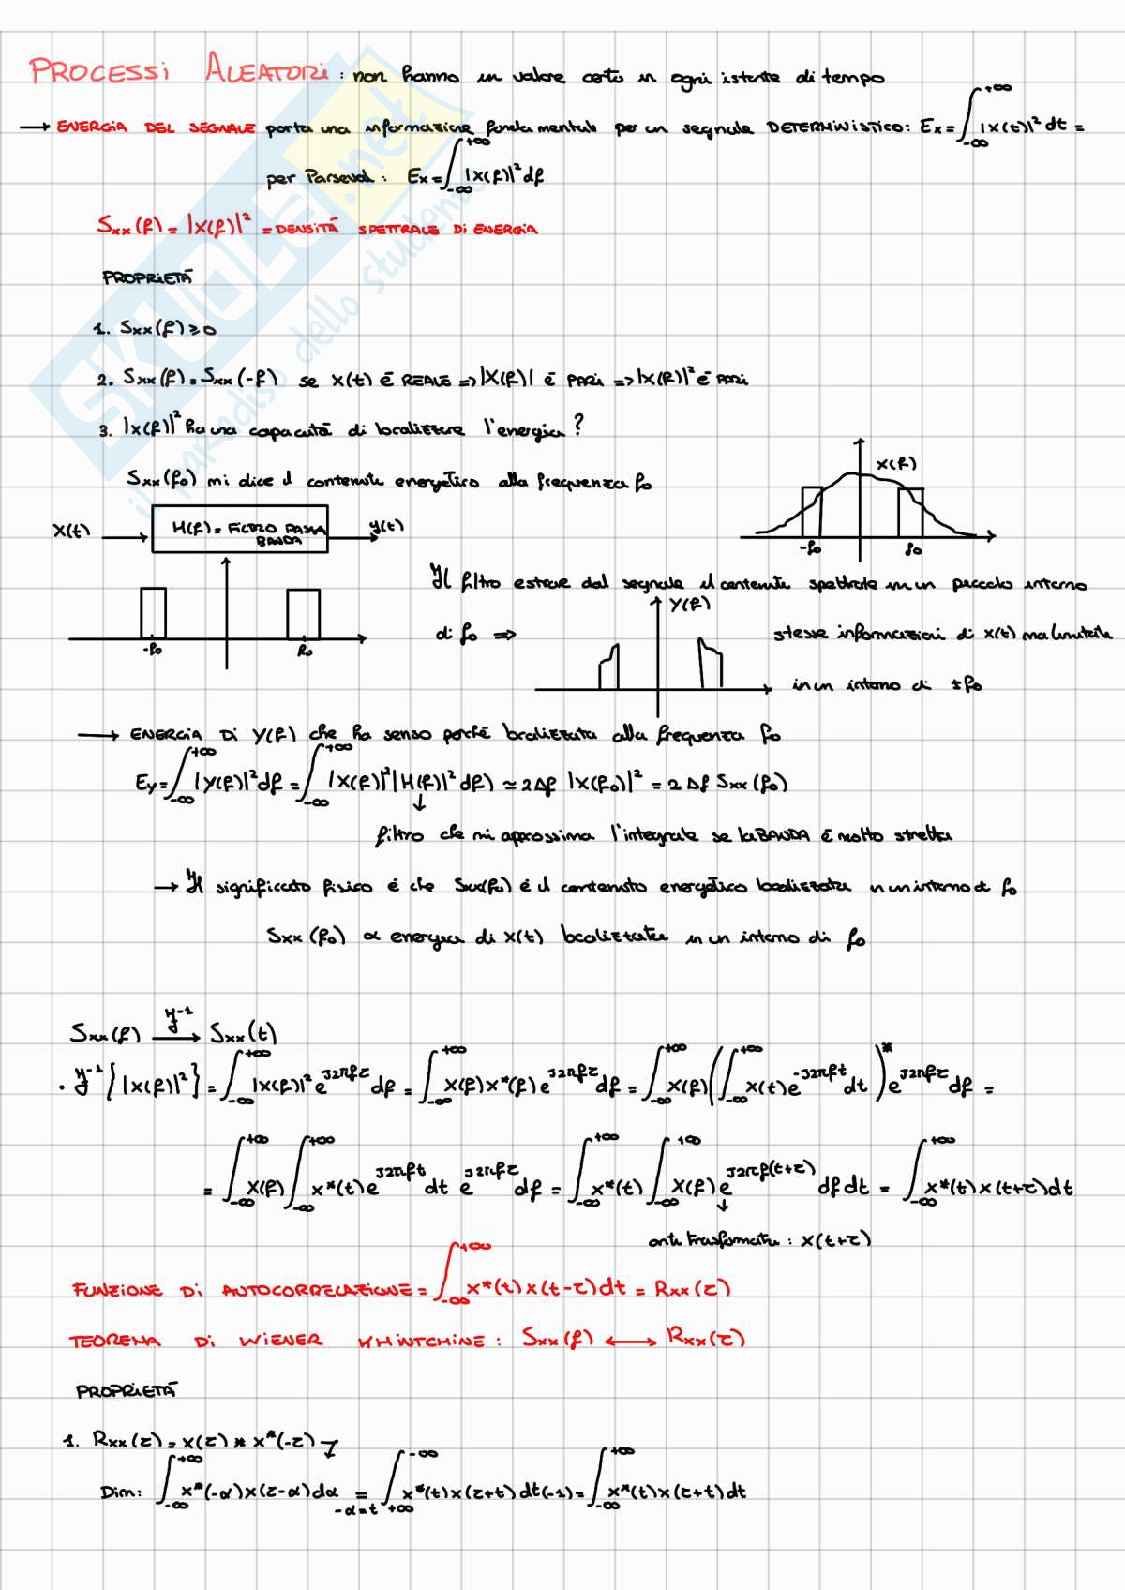 PROCESSI ALEATORI: non hanno un valore certo in ogni istante di tempo
→ ENERGIA DEL SEGNALE porta una informazione fondamentale per un segnale DETERMINISTICO: Ex = ∫_{-∞}^{+∞} |x(t)|² dt =
per Parseval: Ex = ∫_{-∞}^{+∞} |X(f)|² df
Sxx(f) = |X(f)|² = DENSITÀ SPETTRALE DI ENERGIA
PROPRIETÀ
1. Sxx(f) ≥ 0
2. Sxx(f) = Sxx(-f) se x(t) è REALE => |X(f)| è PARI => |X(f)|² è PARI
3. |X(f)|² ha una capacità di localizzare l'energia?
Sxx(f0) mi dice il contenuto energetico alla frequenza f0
X(f)
-f0 f0
X(t) H(f) = FILTRO PASSA BANDA y(t)
-f0 f0
Il filtro estrae dal segnale il contenuto spettrale in un piccolo intorno
di f0 =>
Y(f)
stesse informazioni di x(t) ma limitata
in un intorno di ±f0
→ ENERGIA DI Y(f) che ha senso perché localizzata alla frequenza f0
Ey = ∫_{-∞}^{+∞} |Y(f)|² df = ∫_{-∞}^{+∞} |X(f)|² |H(f)|² df) ≃ 2Δf |X(f0)|² = 2Δf Sxx(f0)
↓
filtro che mi approssima l'integrale se la BANDA è molto stretta
→ Il significato fisico è che Sxx(f0) è il contenuto energetico localizzato in un intorno di f0
Sxx(f0) α energia di x(t) localizzata in un intorno di f0
Sxx(f) —ℱ⁻¹→ Sxx(t)
· ℱ⁻¹{|X(f)|²} = ∫_{-∞}^{+∞} |X(f)|² e^{j2πfτ} df = ∫_{-∞}^{+∞} X(f)X*(f) e^{j2πfτ} df = ∫_{-∞}^{+∞} X(f) (∫_{-∞}^{+∞} x(t)e^{-j2πft} dt)* e^{j2πfτ} df =
= ∫_{-∞}^{+∞} X(f) ∫_{-∞}^{+∞} x*(t)e^{j2πft} dt e^{j2πfτ} df = ∫_{-∞}^{+∞} x*(t) ∫_{-∞}^{+∞} X(f) e^{j2πf(t+τ)} df dt = ∫_{-∞}^{+∞} x*(t) x(t+τ) dt
↓
anti trasformata: x(t+τ)
FUNZIONE DI AUTOCORRELAZIONE = ∫_{-∞}^{+∞} x*(t) x(t-τ) dt = Rxx(τ)
TEOREMA DI WIENER KHINTCHINE: Sxx(f) ⟷ Rxx(τ)
PROPRIETÀ
1. Rxx(τ) = x(τ) * x*(-τ)
Dim: ∫_{-∞}^{+∞} x*(-α) x(τ-α) dα =_{-α=t} ∫_{+∞}^{-∞} x*(t) x(τ+t) dt(-1) = ∫_{-∞}^{+∞} x*(t) x(τ+t) dt
SKUOLA.net
il paradiso dello studente